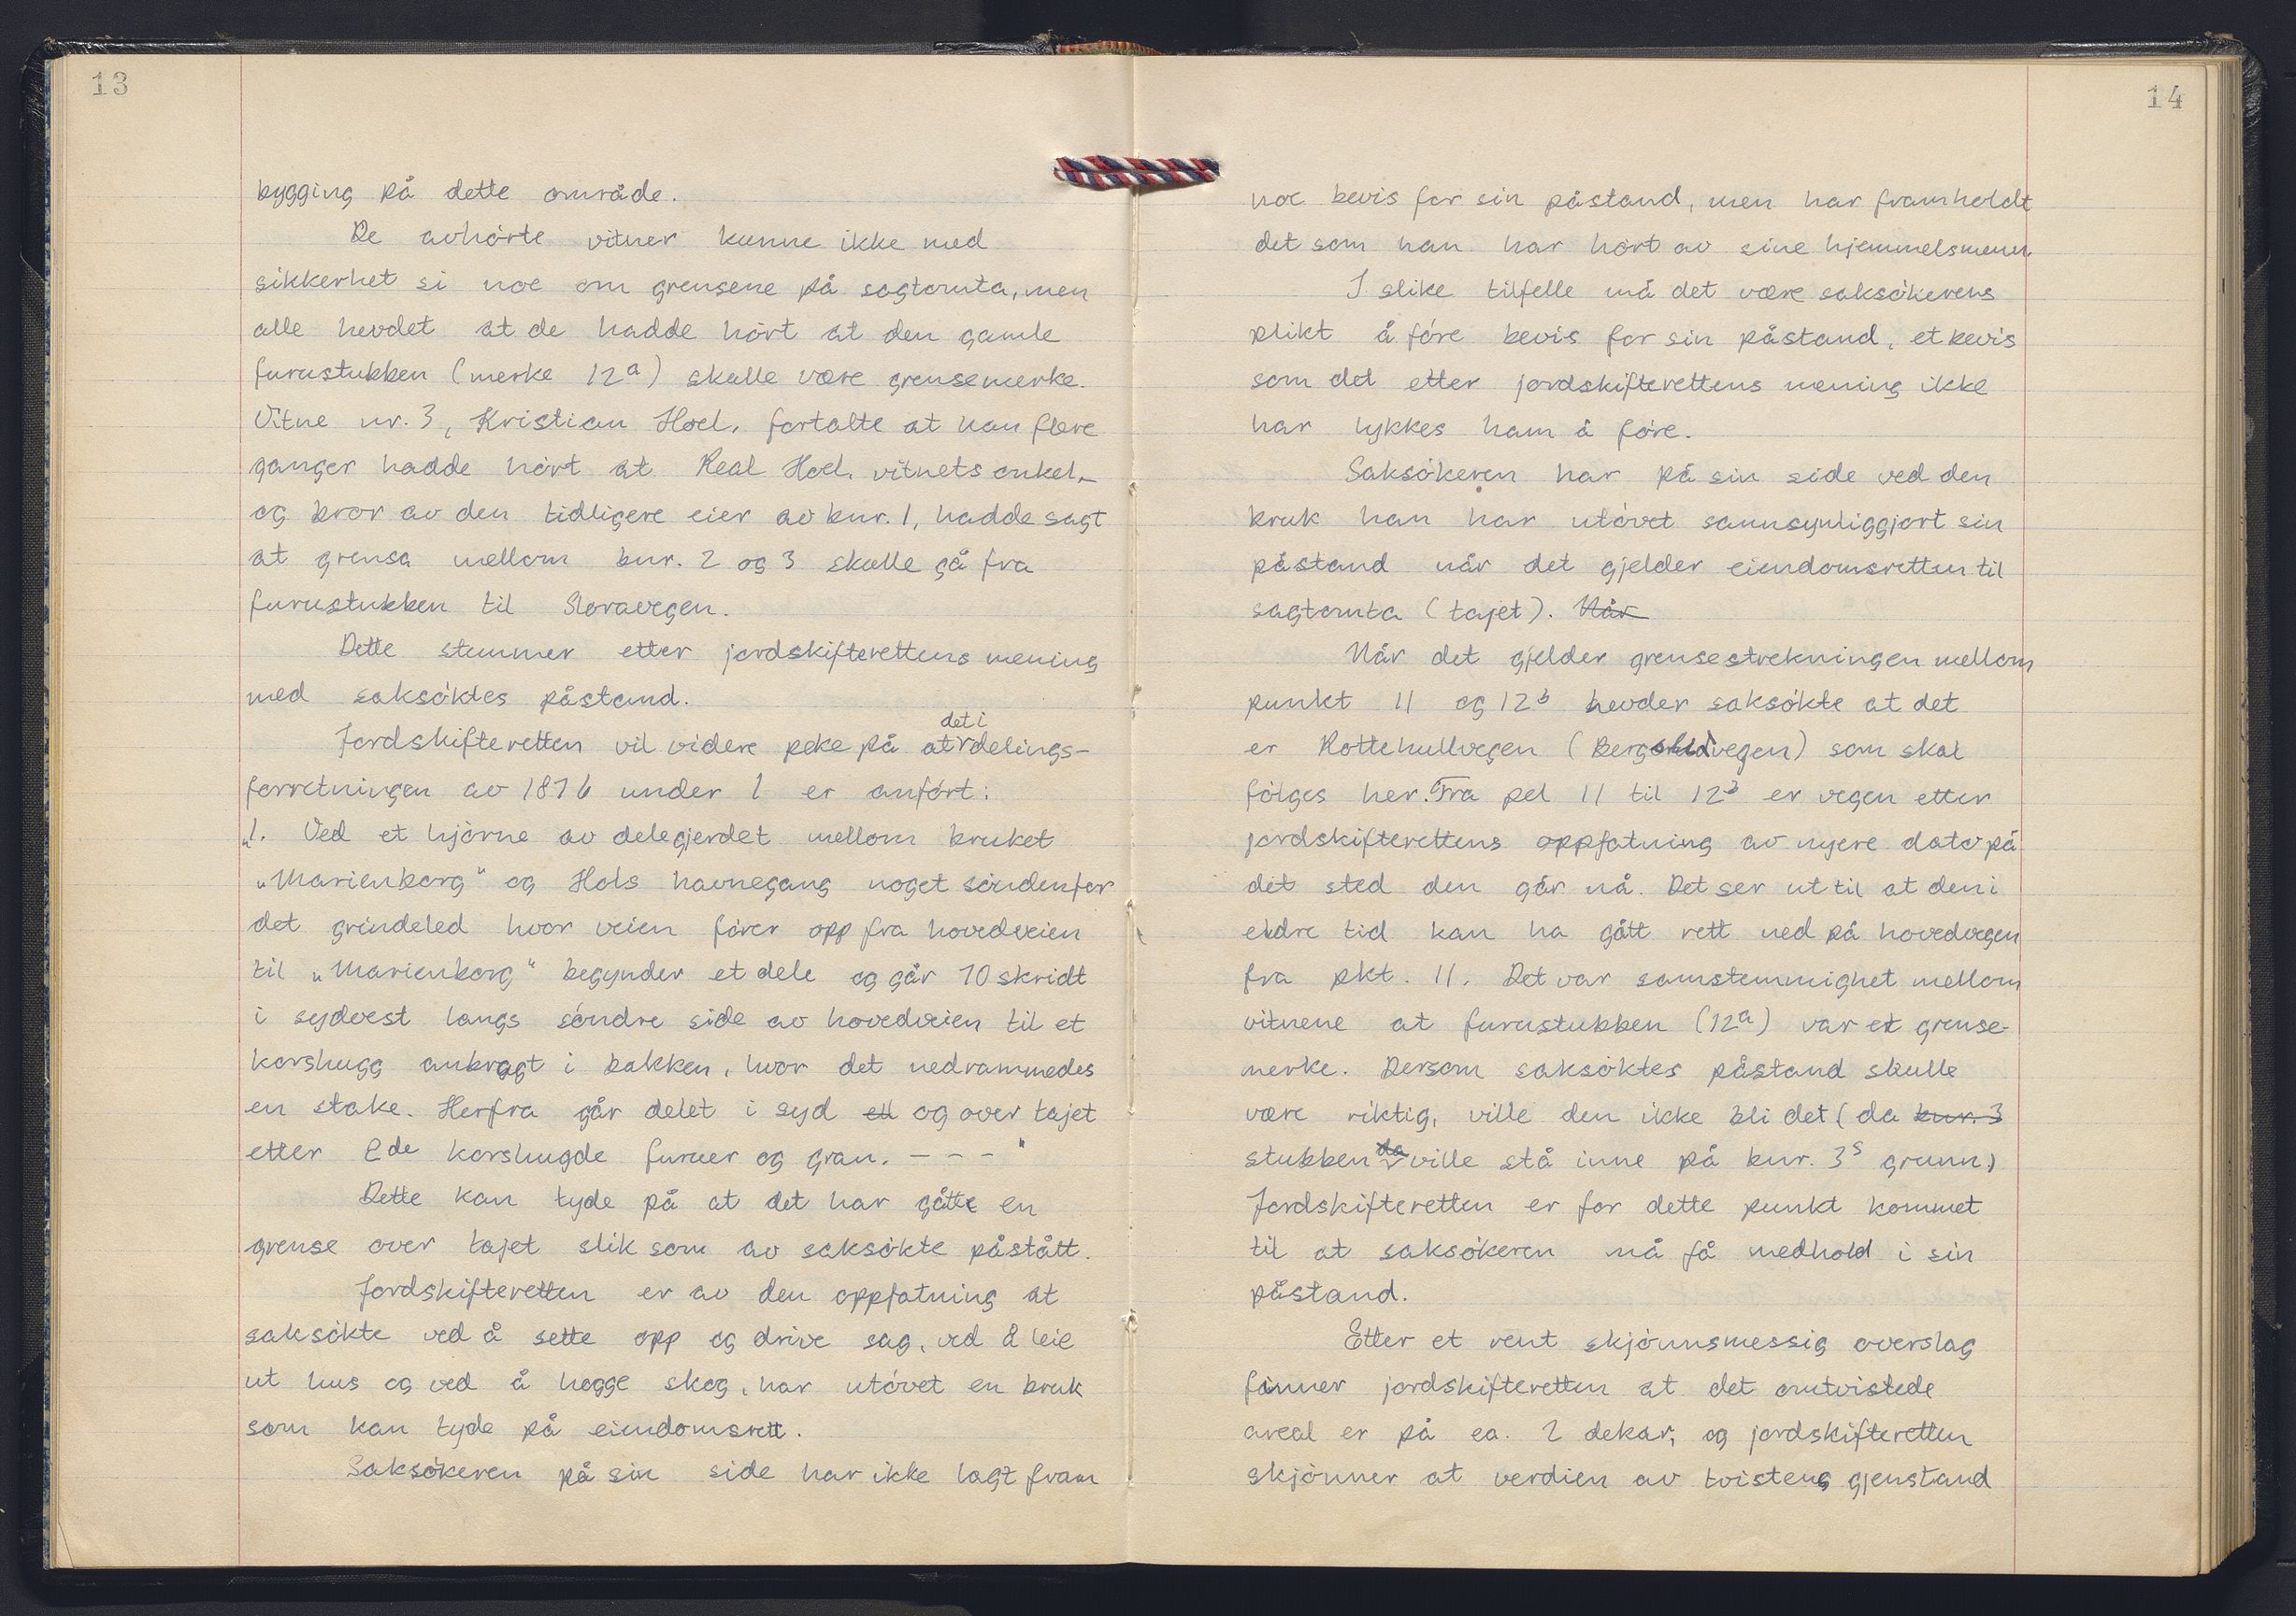 13
bygging på dette område.
De avhørte vitner kunne ikke med
sikkerhet si noe om grensene på sagtomta, men
alle hevdet at de hadde hørt at den gamle
furustubben (merke 12a) skulle være grensemerke.
Vitne nr. 3, Kristian Hoel, fortalte at han flere
ganger hadde hørt at Real Hoel, vitnets onkel,
og bror av den tidligere eier av bnr. 1, hadde sagt
at grensa mellom bnr. 2 og 3 skulle gå fra
furustubben til Storavegen.
Dette stemmer etter jordskifterettens mening
med saksøktes påstand.
Jordskifteretten vil videre peke på at det i delings-
forretningen av 1876 under 1 er anført:
„1. Ved et hjørne av delegjerdet mellom bruket
„Marienborg" og Hols havnegang noget søndenfor
det grindeled hvor veien fører opp fra hovedveien
til „Marienborg" begynder et dele og går 70 skridt
i sydvest langs søndre side av hovedveien til et
korshugg anbragt i bakken, hvor det nedrammedes
en stake. Herfra går delet i syd og over tajet
etter 2de korshugde furuer og gran. - - - "
Dette kan tyde på at det har gått en
grense over tajet slik som av saksøkte påstått.
Jordskifteretten er av den oppfatning at
saksøkte ved å sette opp og drive sag, ved å leie
ut hus og ved å hogge skog, har utøvet en bruk
som kan tyde på eiendomsrett.
Saksøkeren på sin side har ikke lagt fram
14
noe bevis for sin påstand, men har framholdt
det som han har hørt av sine hjemmelsmenn.
I slike tilfelle må det være saksøkerens
plikt å føre bevis for sin påstand, et bevis
som det etter jordskifterettens mening ikke
har lykkes ham å føre.
Saksøkeren har på sin side ved den
bruk han har utøvet sannsynliggjort sin
påstand når det gjelder eiendomsretten til
sagtomta (tajet). Når
Når det gjelder grensestrekningen mellom
punkt 11 og 12b hevder saksøkte at det
er Rottehullvegen (Bergslivegen) som skal
følges her. Fra pel 11 til 12b er vegen etter
jordskifterettens oppfatning av nyere dato på
det sted den går nå. Det ser ut til at den i
eldre tid kan ha gått rett ned på hovedvegen
fra pkt. 11. Det var samstemmighet mellom
vitnene at furustubben (12a) var et grense-
merke. Dersom saksøktes påstand skulle
være riktig, ville den ikke bli det (da bnr. 3
stubben da ville stå inne på bnr. 3s grunn)
Jordskifteretten er for dette punkt kommet
til at saksøkeren må få medhold i sin
påstand.
Etter et rent skjønnsmessig overslag
finner jordskifteretten at det omtvistede
areal er på ca. 2 dekar, og jordskifteretten
skjønner at verdien av tvistens gjenstand